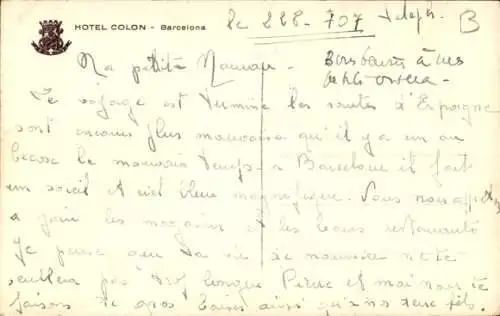 HOTEL COLON - Barcelona
le 228-707 teleph. B
Bons baisers à mes
petits
Ma petite Maman -
Le voyage est terminé les routes d'Espagne
sont encore plus mauvaises qu'il y a un an
le mauvais temps - a Barcelone il fait
un soleil et ciel bleu magnifique. Nous nous
les magasins et les bons restaurants
Je pense que ta vie de nourrice ne te
semblera pas trop longue Pierre et moi nous te
faisons de gros baisers ainsi qu'à nos deux fils.